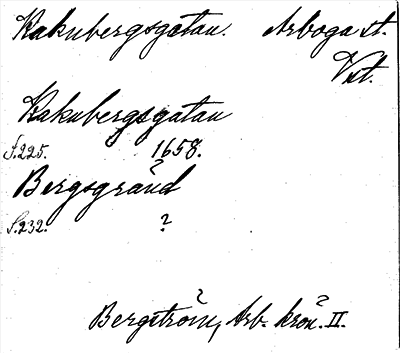 Kakubergsgatan. Arboga st.
Vst.
Kakubergsgatan
s. 225. 1658.
Bergsgränd
s. 232. ?
Bergström, Arb. krön. II.